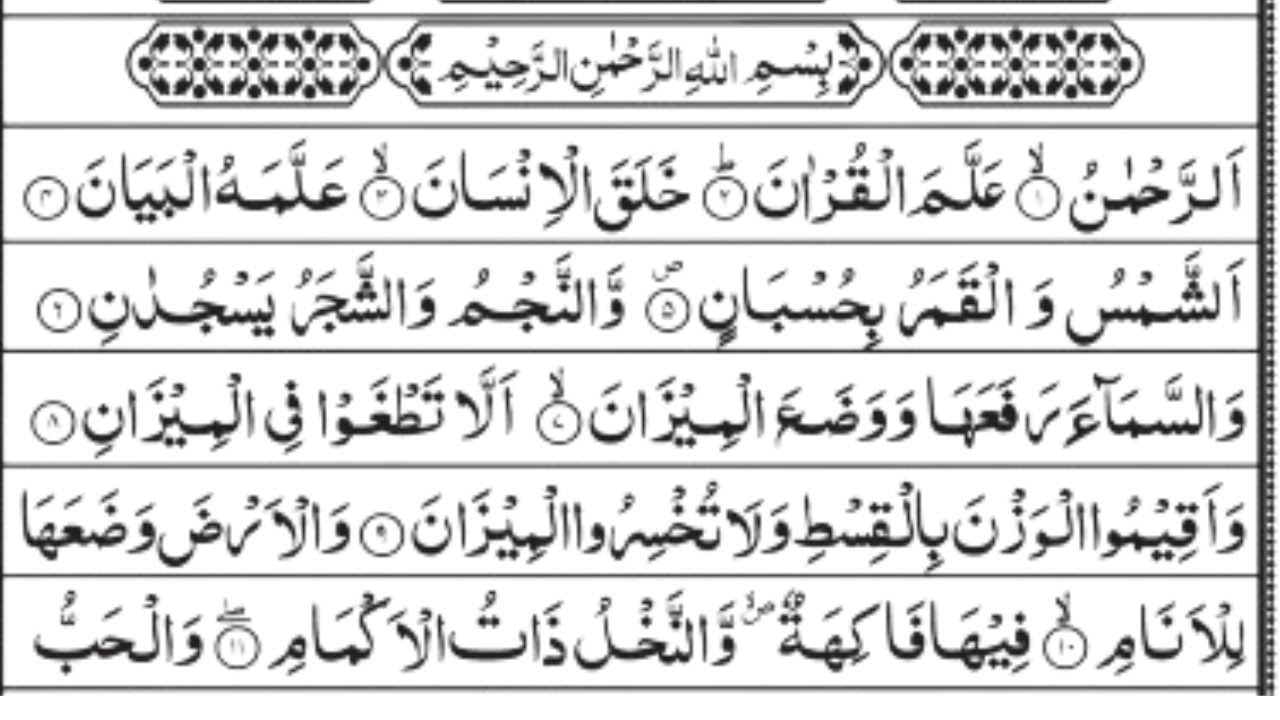 بِسْمِ اللهِ الرَّحْمٰنِ الرَّحِيْمِ
اَلرَّحْمٰنُ ۙ﴿۱﴾ عَلَّمَ الْقُرْاٰنَ ؕ﴿۲﴾ خَلَقَ الْاِنْسَانَ ۙ﴿۳﴾ عَلَّمَهُ الْبَيَانَ ﴿۴﴾
اَلشَّمْسُ وَ الْقَمَرُ بِحُسْبَانٍ ۪﴿۵﴾ وَّالنَّجْمُ وَالشَّجَرُ يَسْجُدٰنِ ﴿۶﴾
وَالسَّمَآءَ رَفَعَهَا وَوَضَعَ الْمِيْزَانَ ۙ﴿۷﴾ اَلَّا تَطْغَوْا فِى الْمِيْزَانِ ﴿۸﴾
وَاَقِيْمُوا الْوَزْنَ بِالْقِسْطِ وَلَا تُخْسِرُوا الْمِيْزَانَ ﴿۹﴾ وَالْاَرْضَ وَضَعَهَا
لِلْاَنَامِ ۙ﴿۱۰﴾ فِيْهَا فَاكِهَةٌ ۪ۙ وَّالنَّخْلُ ذَاتُ الْاَكْمَامِ ۖ﴿۱۱﴾ وَالْحَبُّ